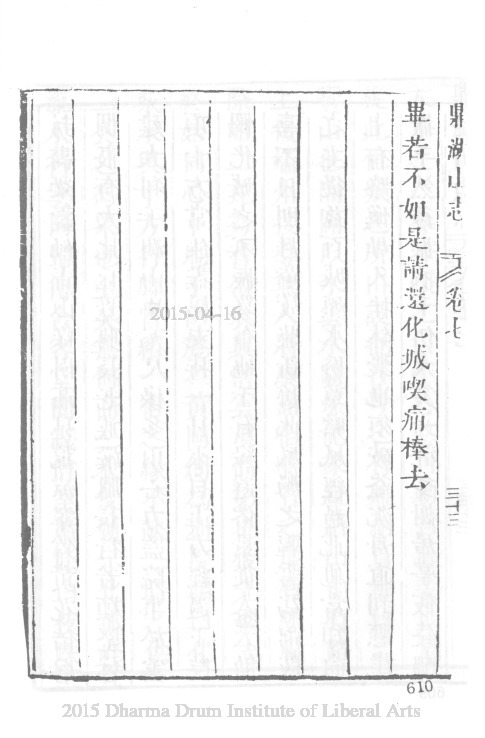 鼎湖山志
卷七
三十三
畢若不如是請還化城喫痛棒去
2015-04-16
610
2015 Dharma Drum Institute of Liberal Arts